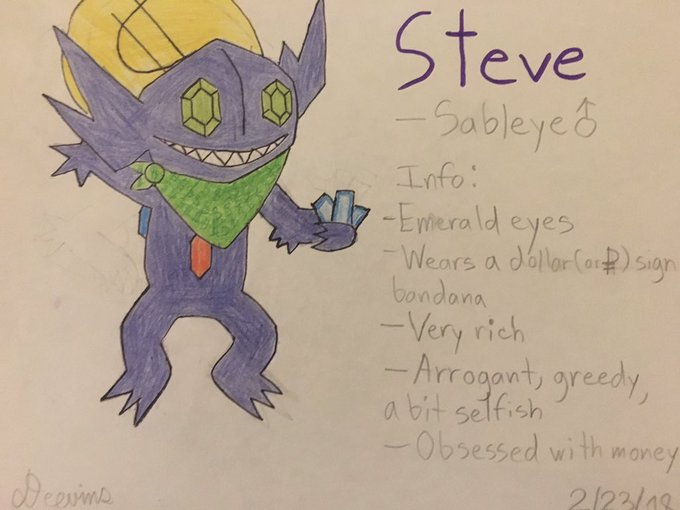 Steve
- Sableye ♂
Info:
- Emerald eyes
- Wears a dollar (or ₽) sign
bandana
- Very rich
- Arrogant, greedy,
a bit selfish
- Obsessed with money
2/23/18